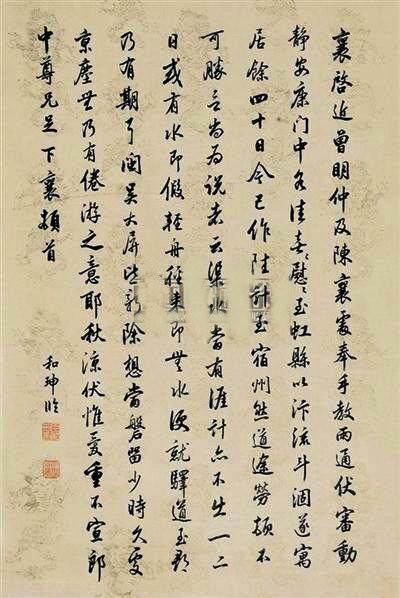 襄啓近曾明仲及陳襄處奉手教兩通伏審動
靜安康門中各佳喜〻慰〻至虹縣以汴流斗涸遂寓
居餘四十日今已作陸計至宿州然道途勞頓不
可勝言尚為說者云渠水當有涯計亦不出一二
日或有水即假輕舟徑来即無水便就驛道至都
乃有期耳閩吳大屏皆新除想當磐留少時久處
京塵無乃有倦游之意耶秋涼伏惟愛重不宣郎
中尊兄足下襄頓首
和珅臨